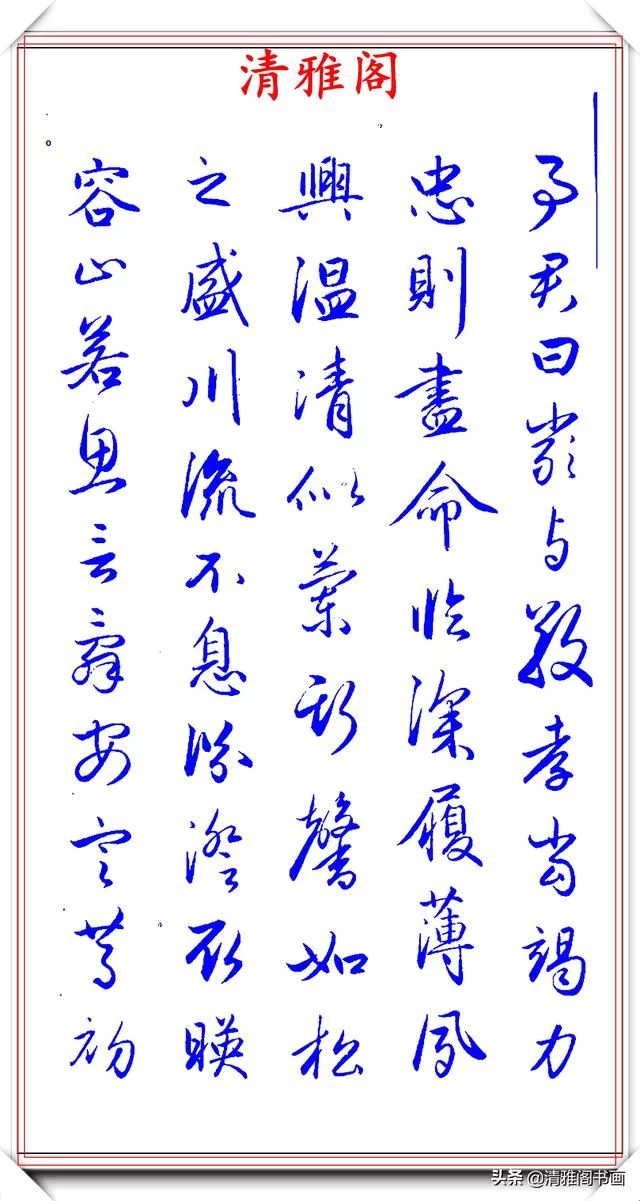 清雅阁
事君曰嚴与敬孝當竭力
忠則盡命臨深履薄夙
興温清似蘭斯馨如松
之盛川流不息淵澄取暎
容止若思言辭安定篤初
头条 @清雅阁书画